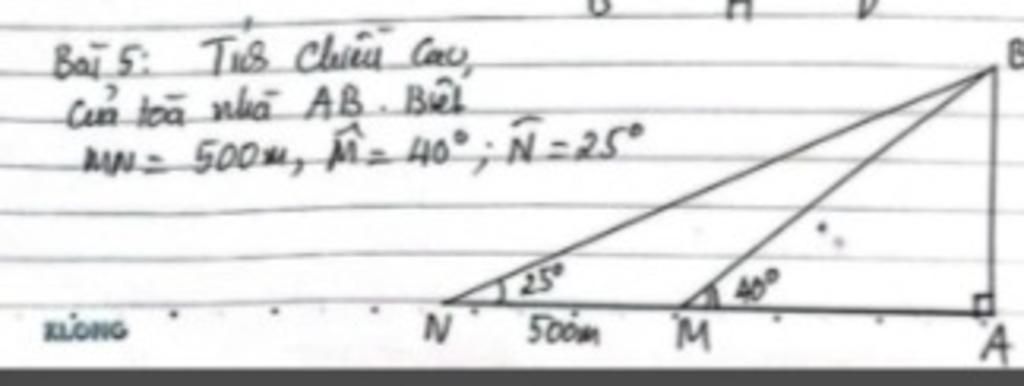 Bài 5: Tính Chiều Cao
của toà nhà AB. Biết
MN = 500m, M̂ = 40°; N̂ = 25°
B
25°
40°
N
500m
M
A
KLONG